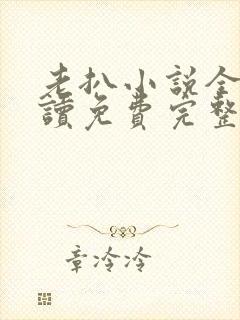 老扒小說全
讀免費完整
章冷冷